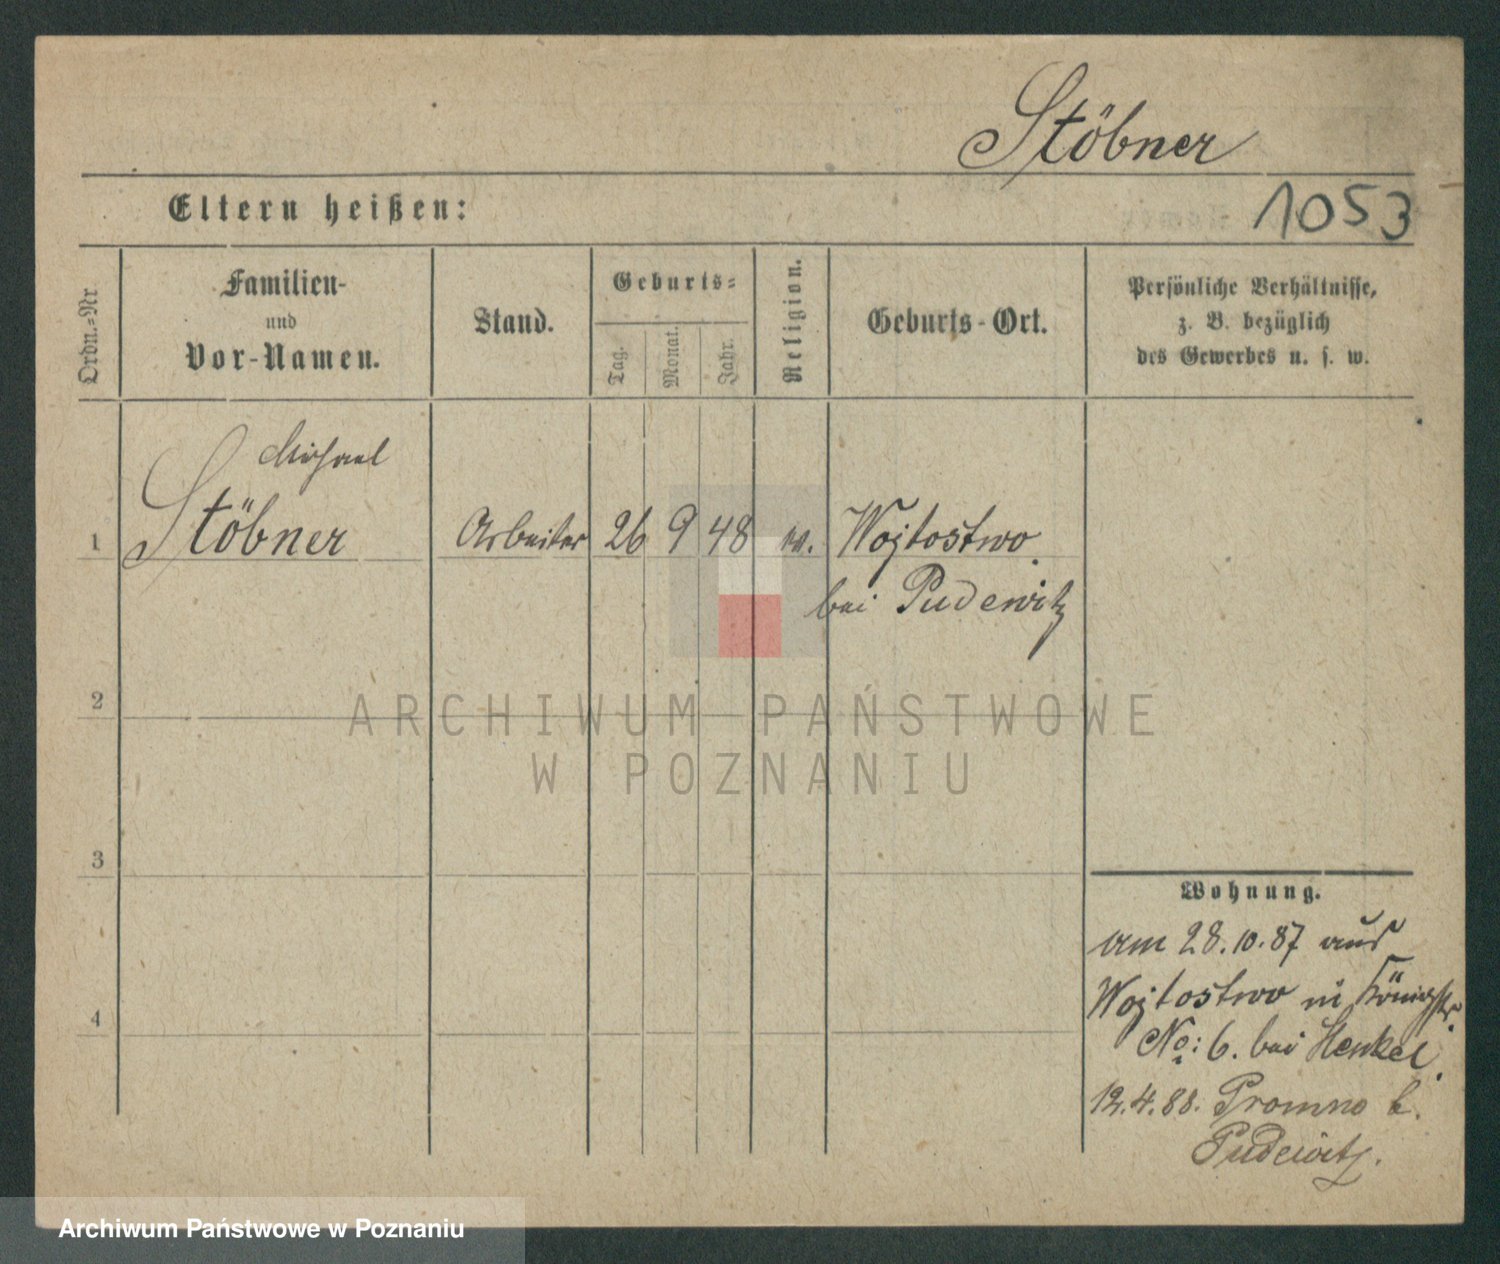 Stöbner
Eltern heißen:
1053
Ordn.-Nr
Familien-
und
Vor-Namen.
Stand.
Geburts-
Tag.
Monat.
Jahr.
Religion.
Geburts-Ort.
Persönliche Verhältnisse,
z. B. bezüglich
des Gewerbes u. s. w.
Michael
1 Stöbner Arbeiter 26 9 48 Wojtostwo
bei Pudewitz
2
3
4
Wohnung.
am 28.10.87 aus
Wojtostwo in Königstr.
No: 6. bei Henkel.
12.4.88. Promno b.
Pudewitz.
ARCHIWUM PAŃSTWOWE
W POZNANIU
Archiwum Państwowe w Poznaniu